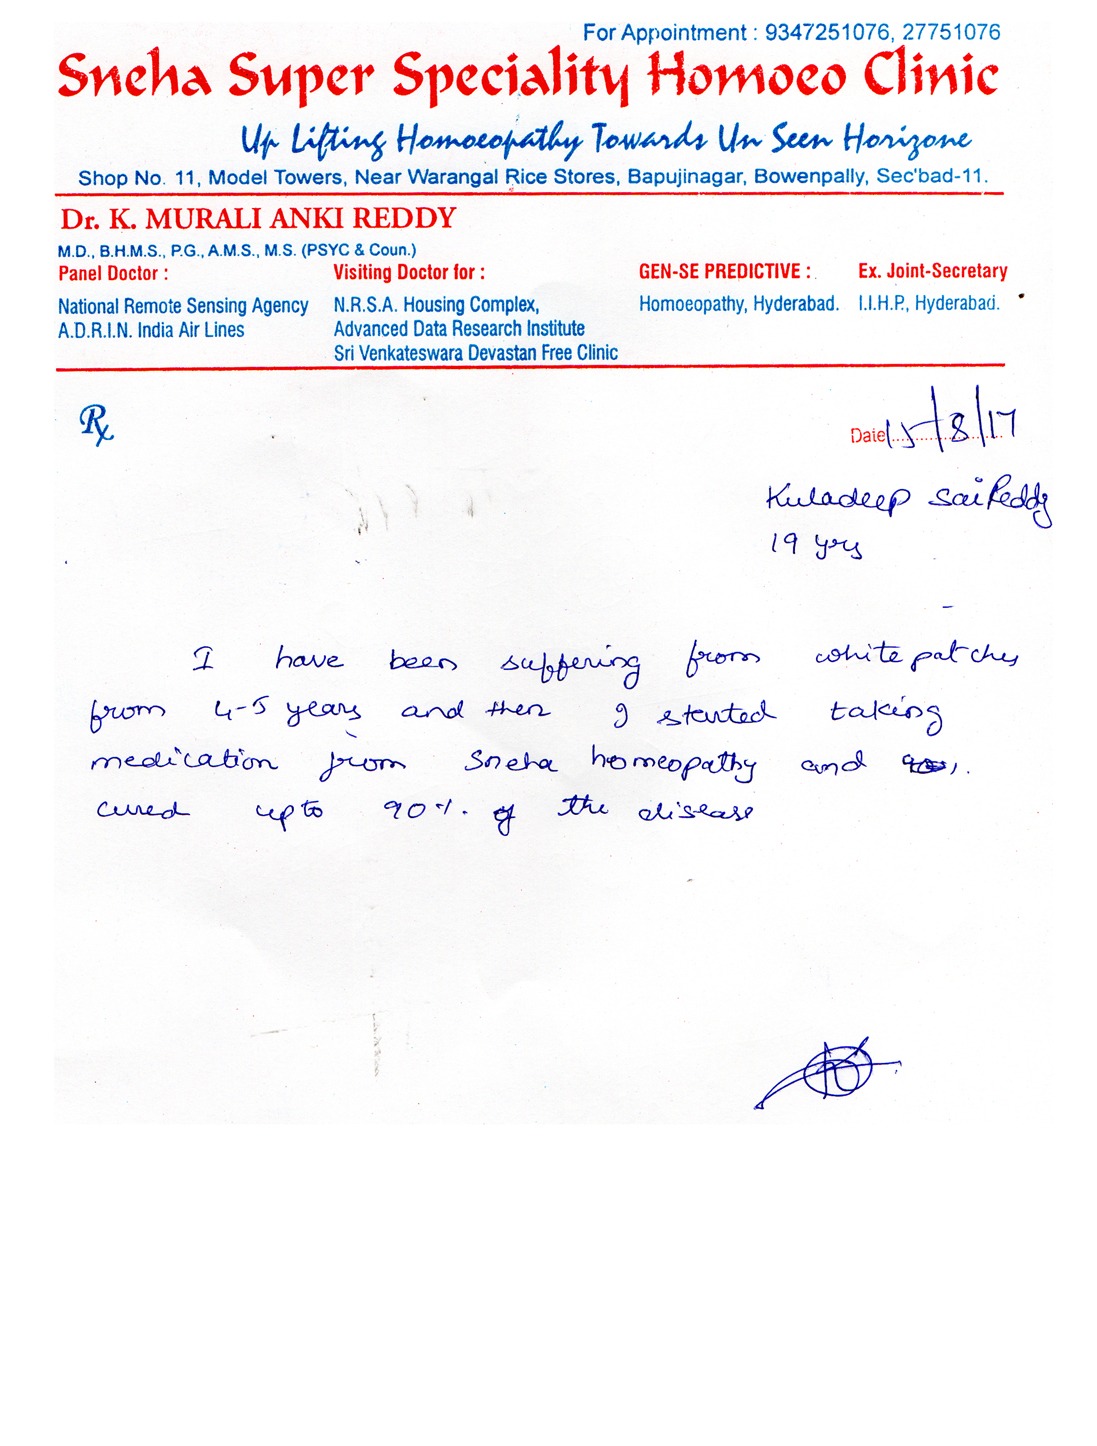 For Appointment : 9347251076, 27751076
Sneha Super Speciality Homoeo Clinic
Up Lifting Homoeopathy Towards Un Seen Horizone
Shop No. 11, Model Towers, Near Warangal Rice Stores, Bapujinagar, Bowenpally, Sec'bad-11.
Dr. K. MURALI ANKI REDDY
M.D., B.H.M.S., P.G., A.M.S., M.S. (PSYC & Coun.)
Panel Doctor : Visiting Doctor for : GEN-SE PREDICTIVE : Ex. Joint-Secretary
National Remote Sensing Agency N.R.S.A. Housing Complex, Homoeopathy, Hyderabad. I.I.H.P., Hyderabad.
A.D.R.I.N. India Air Lines Advanced Data Research Institute
Sri Venkateswara Devastan Free Clinic
Rx Date 15/8/17
Kuladeep Sai Reddy
19 yrs
I have been suffering from white patches
from 4-5 years and then I started taking
medication from Sneha homeopathy and
cured upto 90%. of the disease